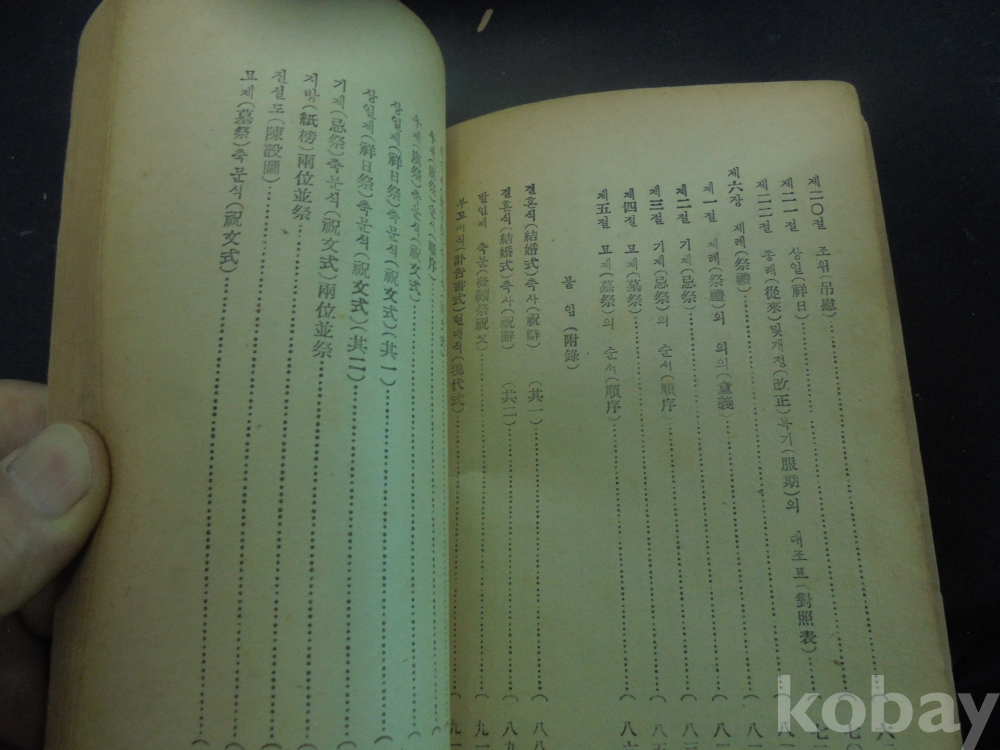 제二○절 조위(吊慰)
제二一절 상일(祥日)
제二二절 종래(從來) 및 개정(改正) 복기(服期)의 대조표(對照表)
제六장 제례(祭禮)
제一절 제례(祭禮)의 의의(意義)
제二절 기제(忌祭)
제三절 기제(忌祭)의 순서(順序)
제四절 묘제(墓祭)
제五절 묘제(墓祭)의 순서(順序)
붙임(附錄)
결혼식(結婚式) 축사(祝辭) (其一)
결혼식(結婚式) 축사(祝辭) (其二)
발인제 축문(發靷祭祝文)
부고서식(訃告書式) 현대식(現代式)
우제(虞祭) 축문식(祝文式)
상일제(祥日祭) 축문식(祝文式)(其一)
상일제(祥日祭) 축문식(祝文式)(其二)
기제(忌祭) 축문식(祝文式) 兩位並祭
지방(紙榜) 兩位並祭
진설도(陳設圖)
묘제(墓祭) 축문식(祝文式)
kobay